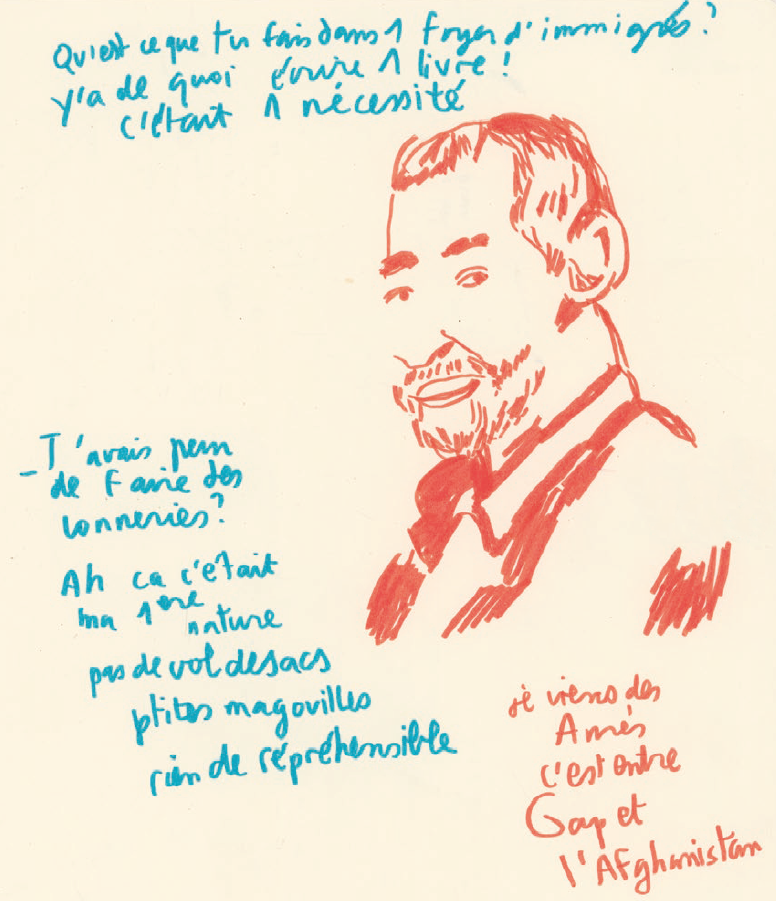 Qu'est ce que tu fais dans 1 foyer d'immigrés ?
y'a de quoi écrire 1 livre !
c'était 1 nécessité
- T'avais peur
de faire des
conneries ?
Ah ca c'était
ma 1ere
nature
pas de vol de sacs
ptites magouilles
rien de répréhensible
je viens des
Amés
c'est entre
Gap et
l'Afghanistan